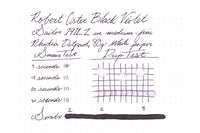 Robert Oster Black Violet
Sailor 1911 L in medium-fine
Rhodia Dotpad, 80g white paper
Smear Test Drip Test
5 seconds
10 seconds
20 seconds
30 seconds
Swabs 1 2 3